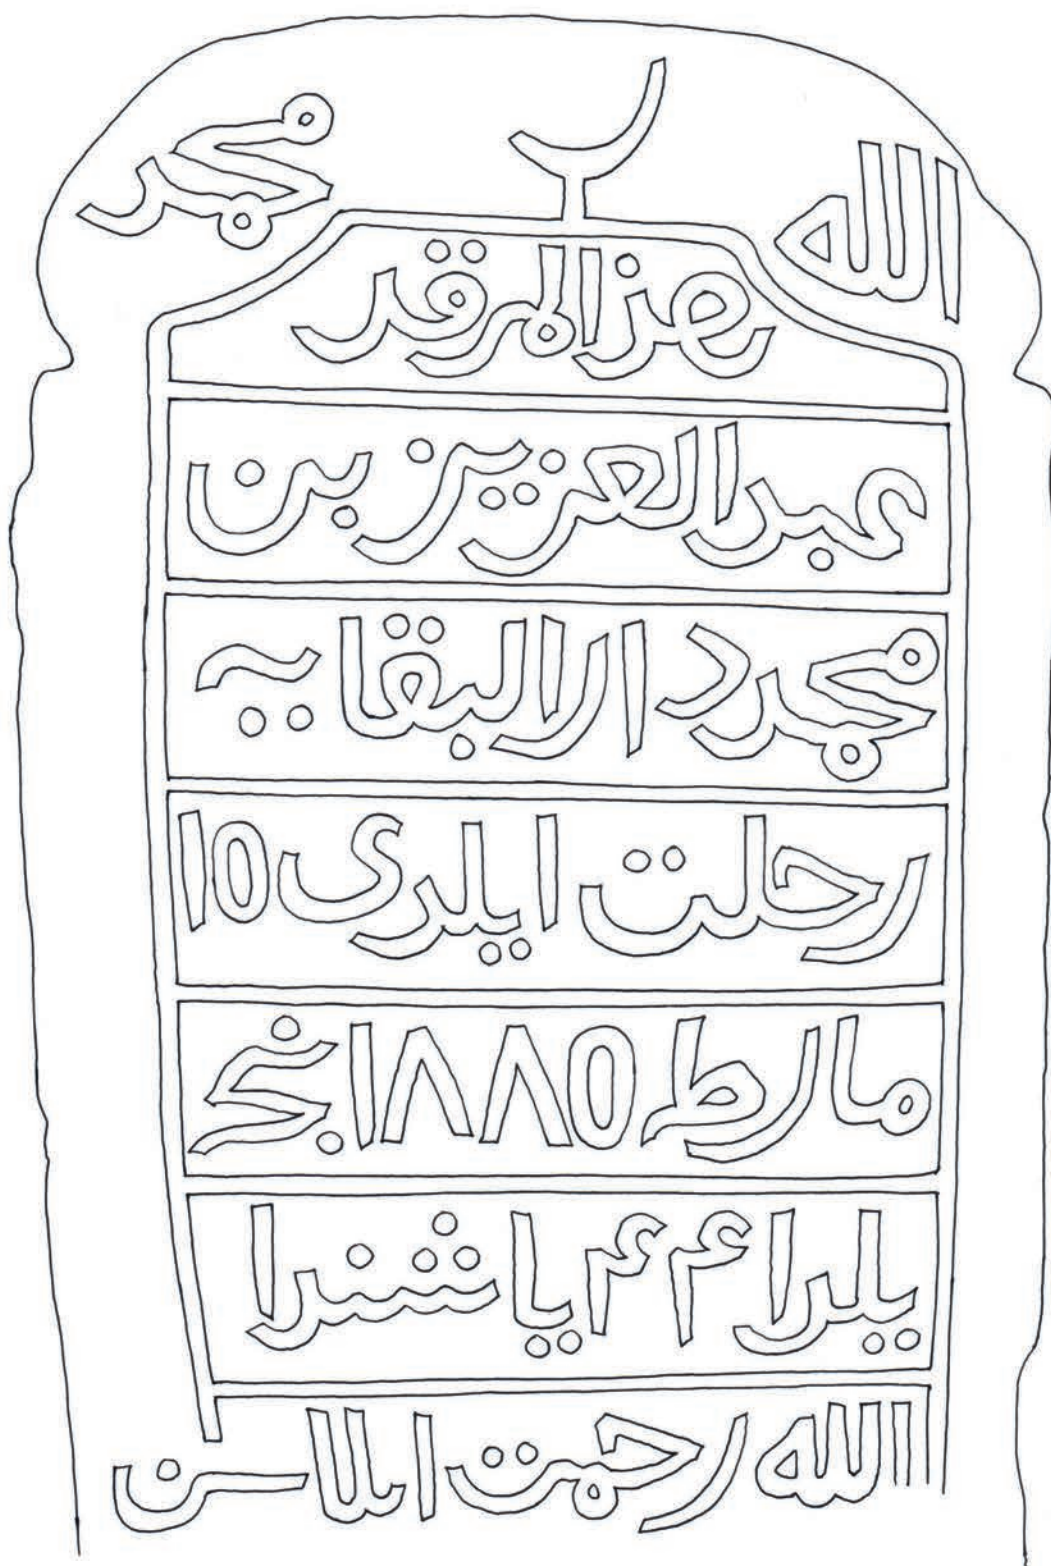 الله محمد
هذا المرقد
عبد العزيز بن
محمد
رحلت ايلدى ١٥
مارط ١٨٨٥ نجى
يلدا ٤٤ ياشندا
الله رحمت ايلاسن